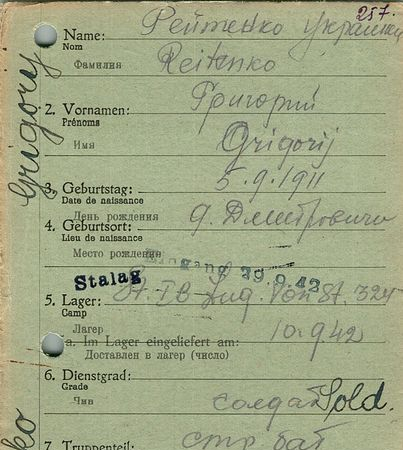 257.
Name: Рейтенко украинец
Nom
Фамилия Reitenko
2. Vornamen: Григорий
Prénoms
Имя Grigorij
3. Geburtstag: 5.9.1911
Date de naissance
День рождения
4. Geburtsort: д. Дмитровичи
Lieu de naissance
Место рождения
Eingang 29.9.42
Stalag
St. IB Zug. von St. 324
5. Lager:
Camp
Лагер 10.9.42
a. Im Lager eingeliefert am:
Доставлен в лагер (число)
6. Dienstgrad:
Grade
Чин солдат Sold.
7. Truppenteil: стр. бат
Grigorij
ko